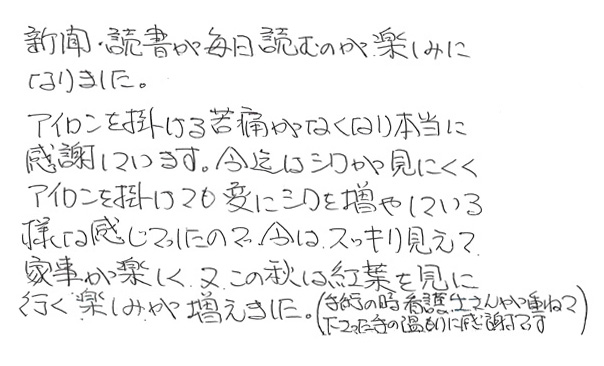 新聞・読書が毎日読むのが楽しみに
なりました。
アイロンを掛ける苦痛がなくなり本当に
感謝しています。今迄はシワが見にくく
アイロンを掛けても変にシワを増やしている
様な感じでったので今は、スッキリ見えて
家事が楽しく又この秋は紅葉を見に
行く楽しみが増えました。(手術の時看護士さんがが重ねて
下さった手の温もりに感謝です)